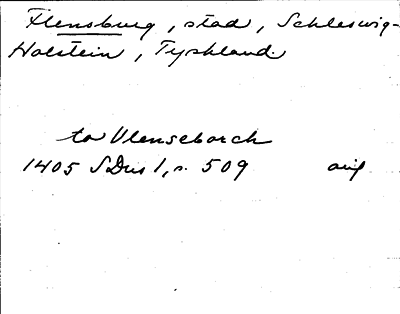 Flensburg, stad, Schleswig-
Holstein, Tyskland.
to Vlenseborch
1405 SDns 1, s. 509 avf